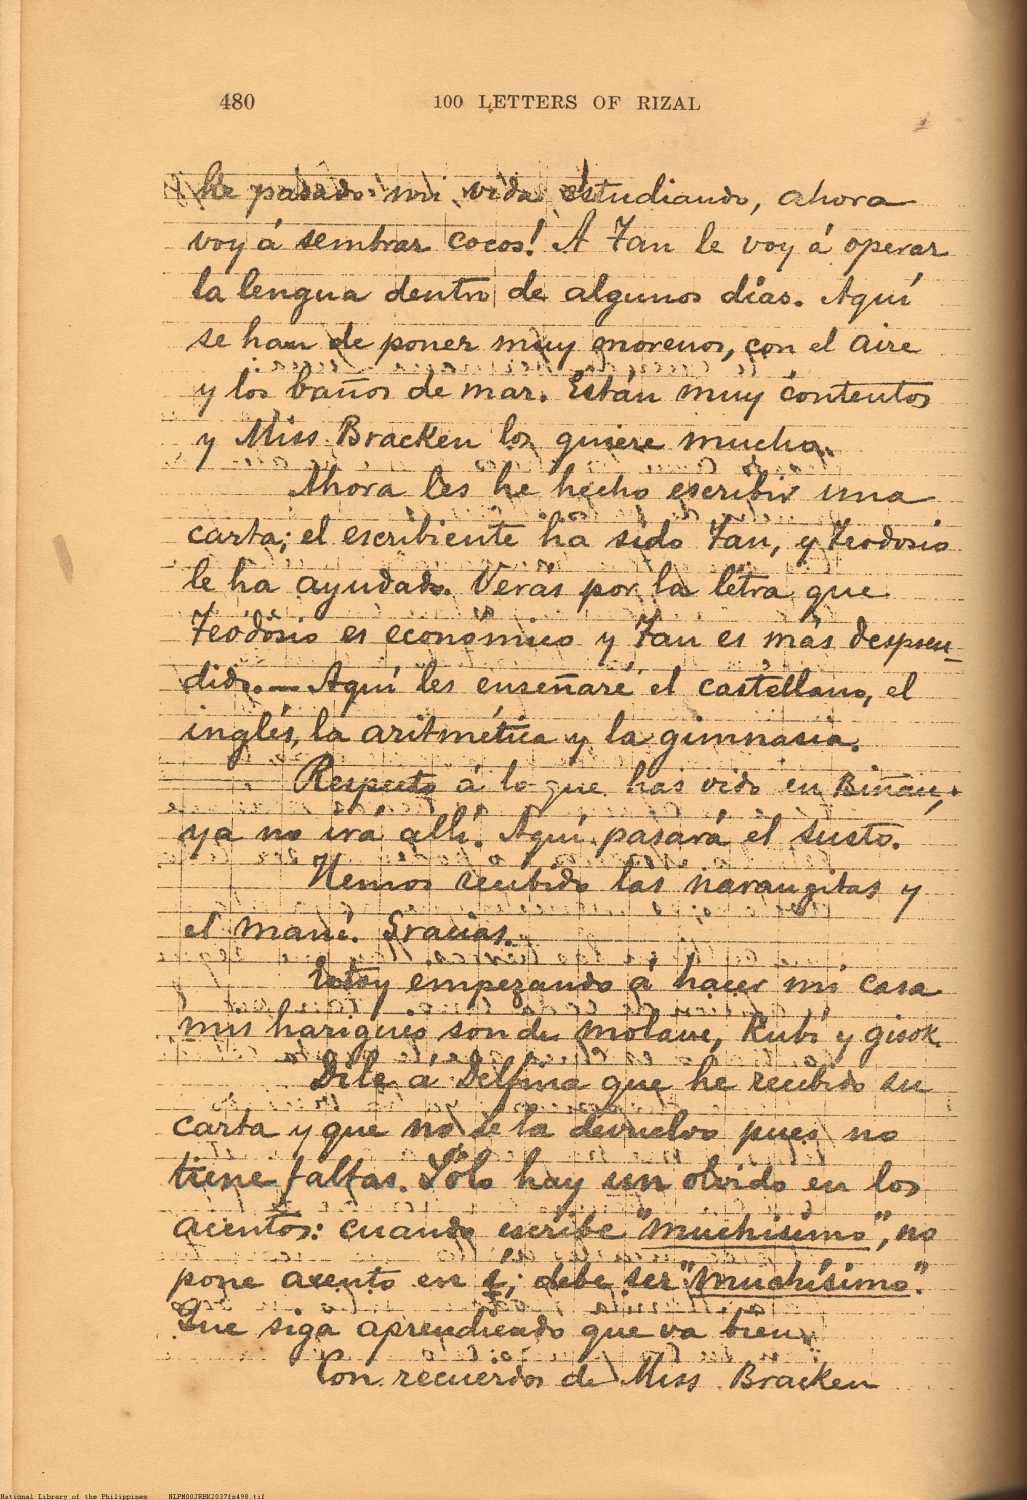 480 100 LETTERS OF RIZAL
he pasado mi vida estudiando, ahora
voy á sembrar cocos! A Tan le voy á operar
la lengua dentro de algunos días. Aquí
se han de poner muy morenos, con el aire
y los baños de mar. Están muy contentos
y Miss Bracken los quiere mucho.
Ahora les he hecho escribir una
carta; el escribiente ha sido Tan, y Teodosio
le ha ayudado. Verás por la letra que
Teodosio es económico y Tan es más despren-
dido.— Aquí les enseñaré el castellano, el
inglés, la aritmética y la gimnasia.
Respecto á lo que has vido en Biñan,
ya no irá allí. Aquí pasará el susto.
Hemos recibido las narangitas y
el maní. Gracias.
Estoy empezando á hacer mi casa
mis harigues son de molave, Rubí y gisok.
Dile á Delfina que he recibido su
carta y que no se la devuelvo pues no
tiene faltas. Sólo hay un olvido en los
acentos: cuando escribe "muchisimo", no
pone acento en í; debe ser "muchísimo".
Que siga aprendiendo que va bien.
Con recuerdos de Miss Bracken
National Library of the Philippines NLPM00JRBK2037fs498.tif